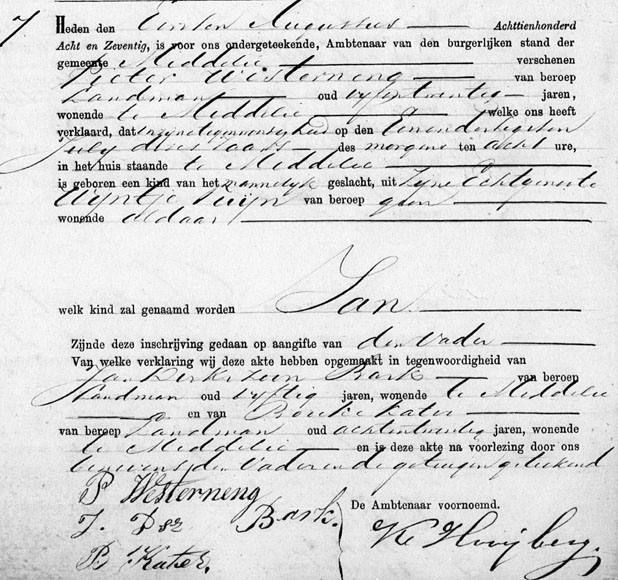 7
Heden den Eersten Augustus Achttienhonderd
Acht en Zeventig, is voor ons ondergeteekende, Ambtenaar van den burgerlijken stand der
gemeente Middelie verschenen
Pieter Westerneng van beroep
Landman oud vyfentwintig jaren,
wonende te Middelie welke ons heeft
verklaard, dat in zyne tegenwoordigheid op den Eenendertigsten
July dezes Jaars des morgens ten acht ure,
in het huis staande te Middelie
is geboren een kind van het mannelyk geslacht, uit Zyne Echtgenoote
Wijntje Tuijn van beroep geen
wonende aldaar
welk kind zal genaamd worden Jan
Zijnde deze inschrijving gedaan op aangifte van den Vader
Van welke verklaring wij deze akte hebben opgemaakt in tegenwoordigheid van
Jan Dirkszoon Bark van beroep
Landman oud vyftig jaren, wonende te Middelie
en van Brouke Kater
van beroep Landman oud achtentwintig jaren, wonende
te Middelie en is deze akte na voorlezing door ons
benevens den Vader en de getuigen geteekend
P Westerneng
J. Dsz Bark.
B Kater.
De Ambtenaar voornoemd.
Ks Hooijberg.